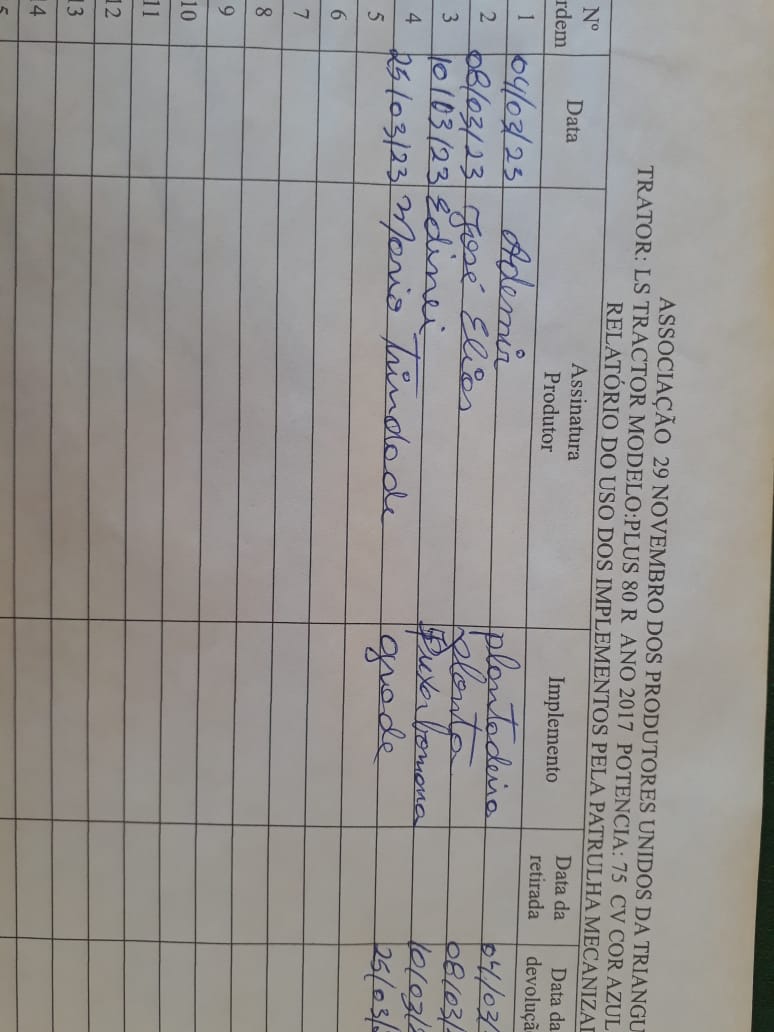 ASSOCIAÇÃO 29 NOVEMBRO DOS PRODUTORES UNIDOS DA TRIANGU
TRATOR: LS TRACTOR MODELO:PLUS 80 R ANO 2017 POTENCIA: 75 CV COR AZUL
RELATÓRIO DO USO DOS IMPLEMENTOS PELA PATRULHA MECANIZA
Nº rdem Data Assinatura Produtor Implemento Data da retirada Data da devoluçã
1 04/03/23 Ademir plantadeira 04/03/
2 08/03/23 José Elias planta 08/03/
3 10/03/23 Edinei 10/03/
4 25/03/23 Mario Trindade grade 25/03/
5
6
7
8
9
10
11
12
13
14